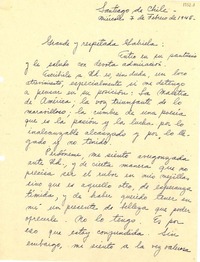 Santiago de Chile -
miércoles 7 de Febrero de 1945.
Grande y respetada Gabriela:
Entro en su santuario
y le saludo con devota admiración.
Escribirle a Ud. es, sin duda, un loco
atrevimiento, especialmente si me detengo
a pensar en su posición: La Maestra
de América, la voz triunfante de lo
maravilloso, la cumbre de una poesía
que es de la pasión y la lucha por lo
inalcanzable alcanzado y por lo lle-
gado y no tenido.
Perdóneme, me siento avergonzada
ante Ud., y de cierta manera que no
precisa ser el rubor en mis mejillas
sino que es aquello otro, de esperanza
tímida, y de haber querido tener en
mí un presente de belleza que poder
ofrecerle. No lo tengo. Es por
eso que estoy confundida. Sin
embargo, mi siento a la vez valiosa